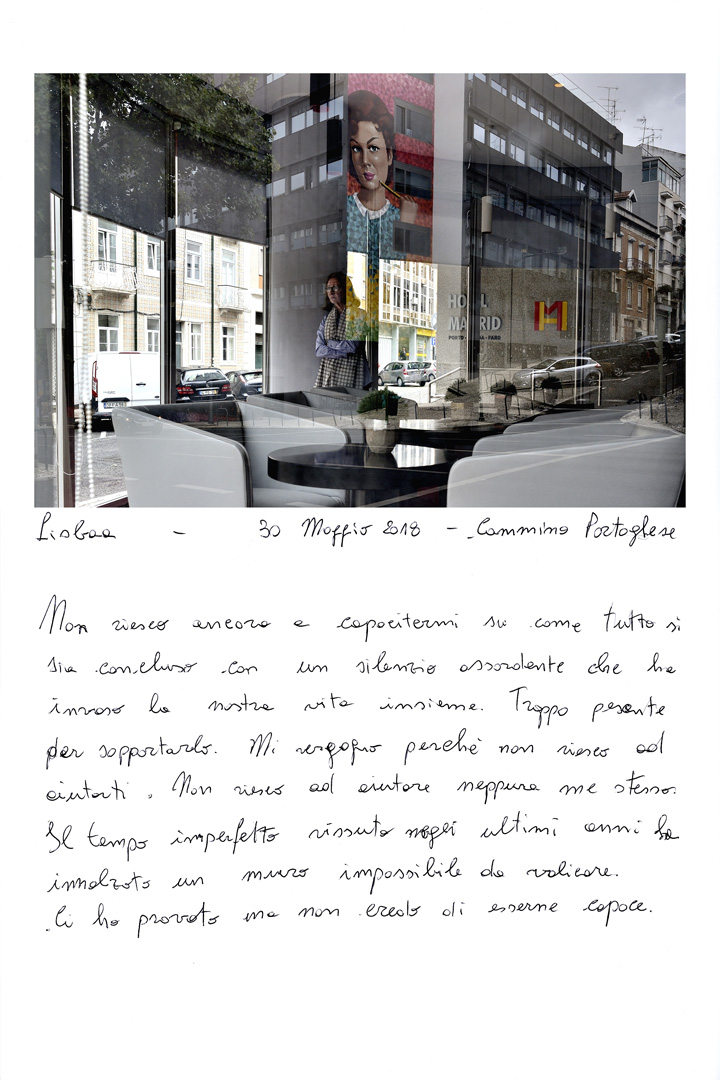 HOTEL
MADRID
PORTO - LISBOA - FARO
Lisboa - 30 Maggio 2018 - Cammino Portoghese
Non riesco ancora a capacitarmi su come tutto si
sia concluso con un silenzio assordante che ha
invaso la nostra vita insieme. Troppo pesante
per sopportarlo. Mi vergogno perché non riesco ad
aiutarti. Non riesco ad aiutare neppure me stesso.
Il tempo imperfetto vissuto negli ultimi anni ha
innalzato un muro impossibile da valicare.
Ci ho provato ma non credo di esserne capace.